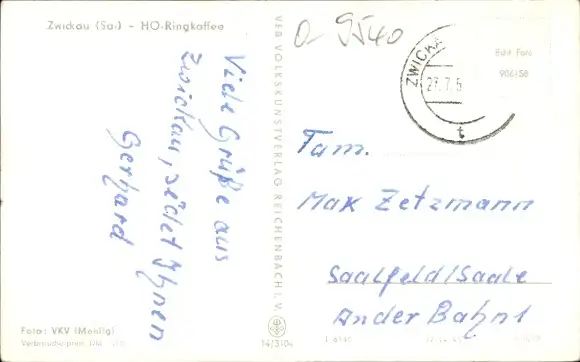 Zwickau (Sa.) - HO-Ringkaffee
Viele Grüße aus
Zwickau, sedet Ihnen
Gerhard
Foto: VKV (Menlig)
VEB VOLKSKUNSTVERLAG REICHENBACH I. V.
14/3104
9540
ZWICKA
27.7.6
t
Echt Foto
906158
Fam.
Max Zetzmann
Saalfeld/Saale
An der Bahn 1